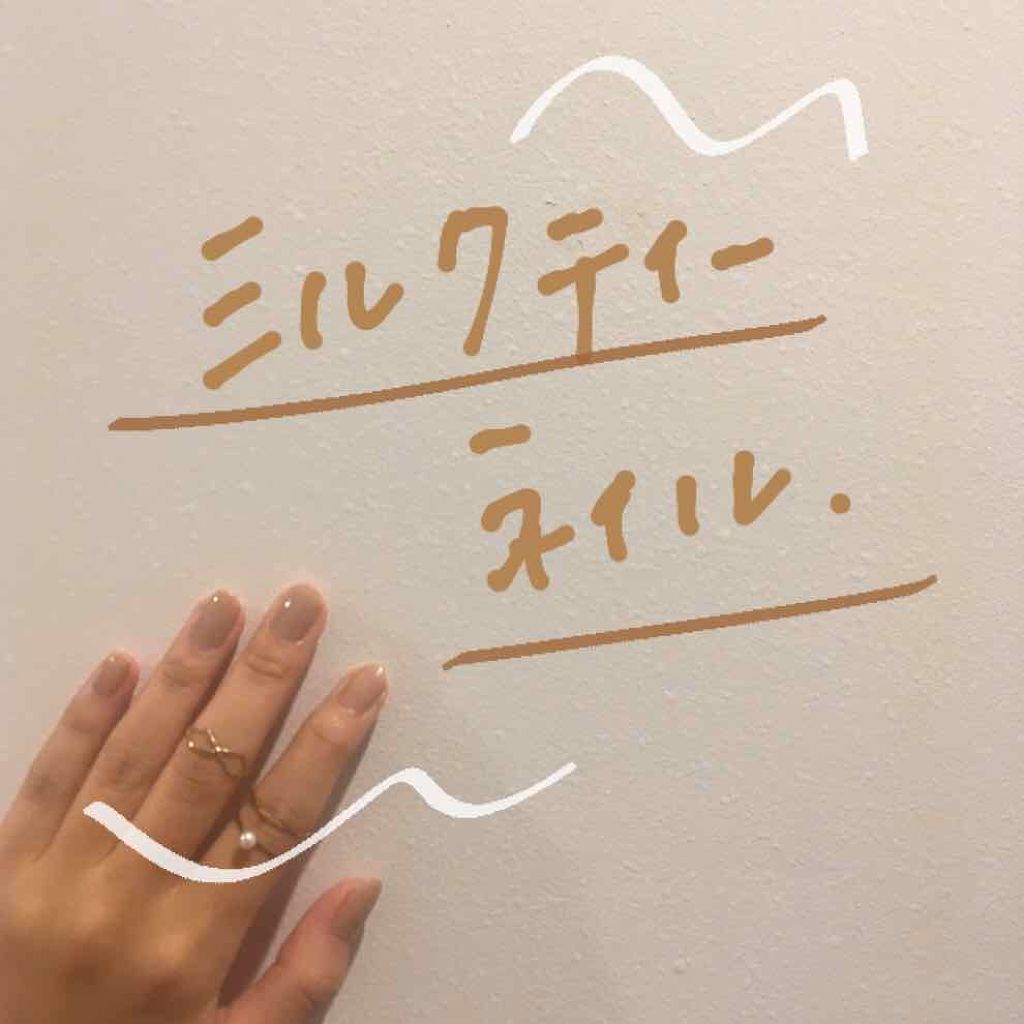 ミルクティー
ネイル.